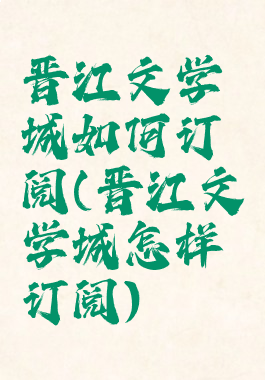 晋江文学
城如何订
阅(晋江文
学城怎样
订阅)